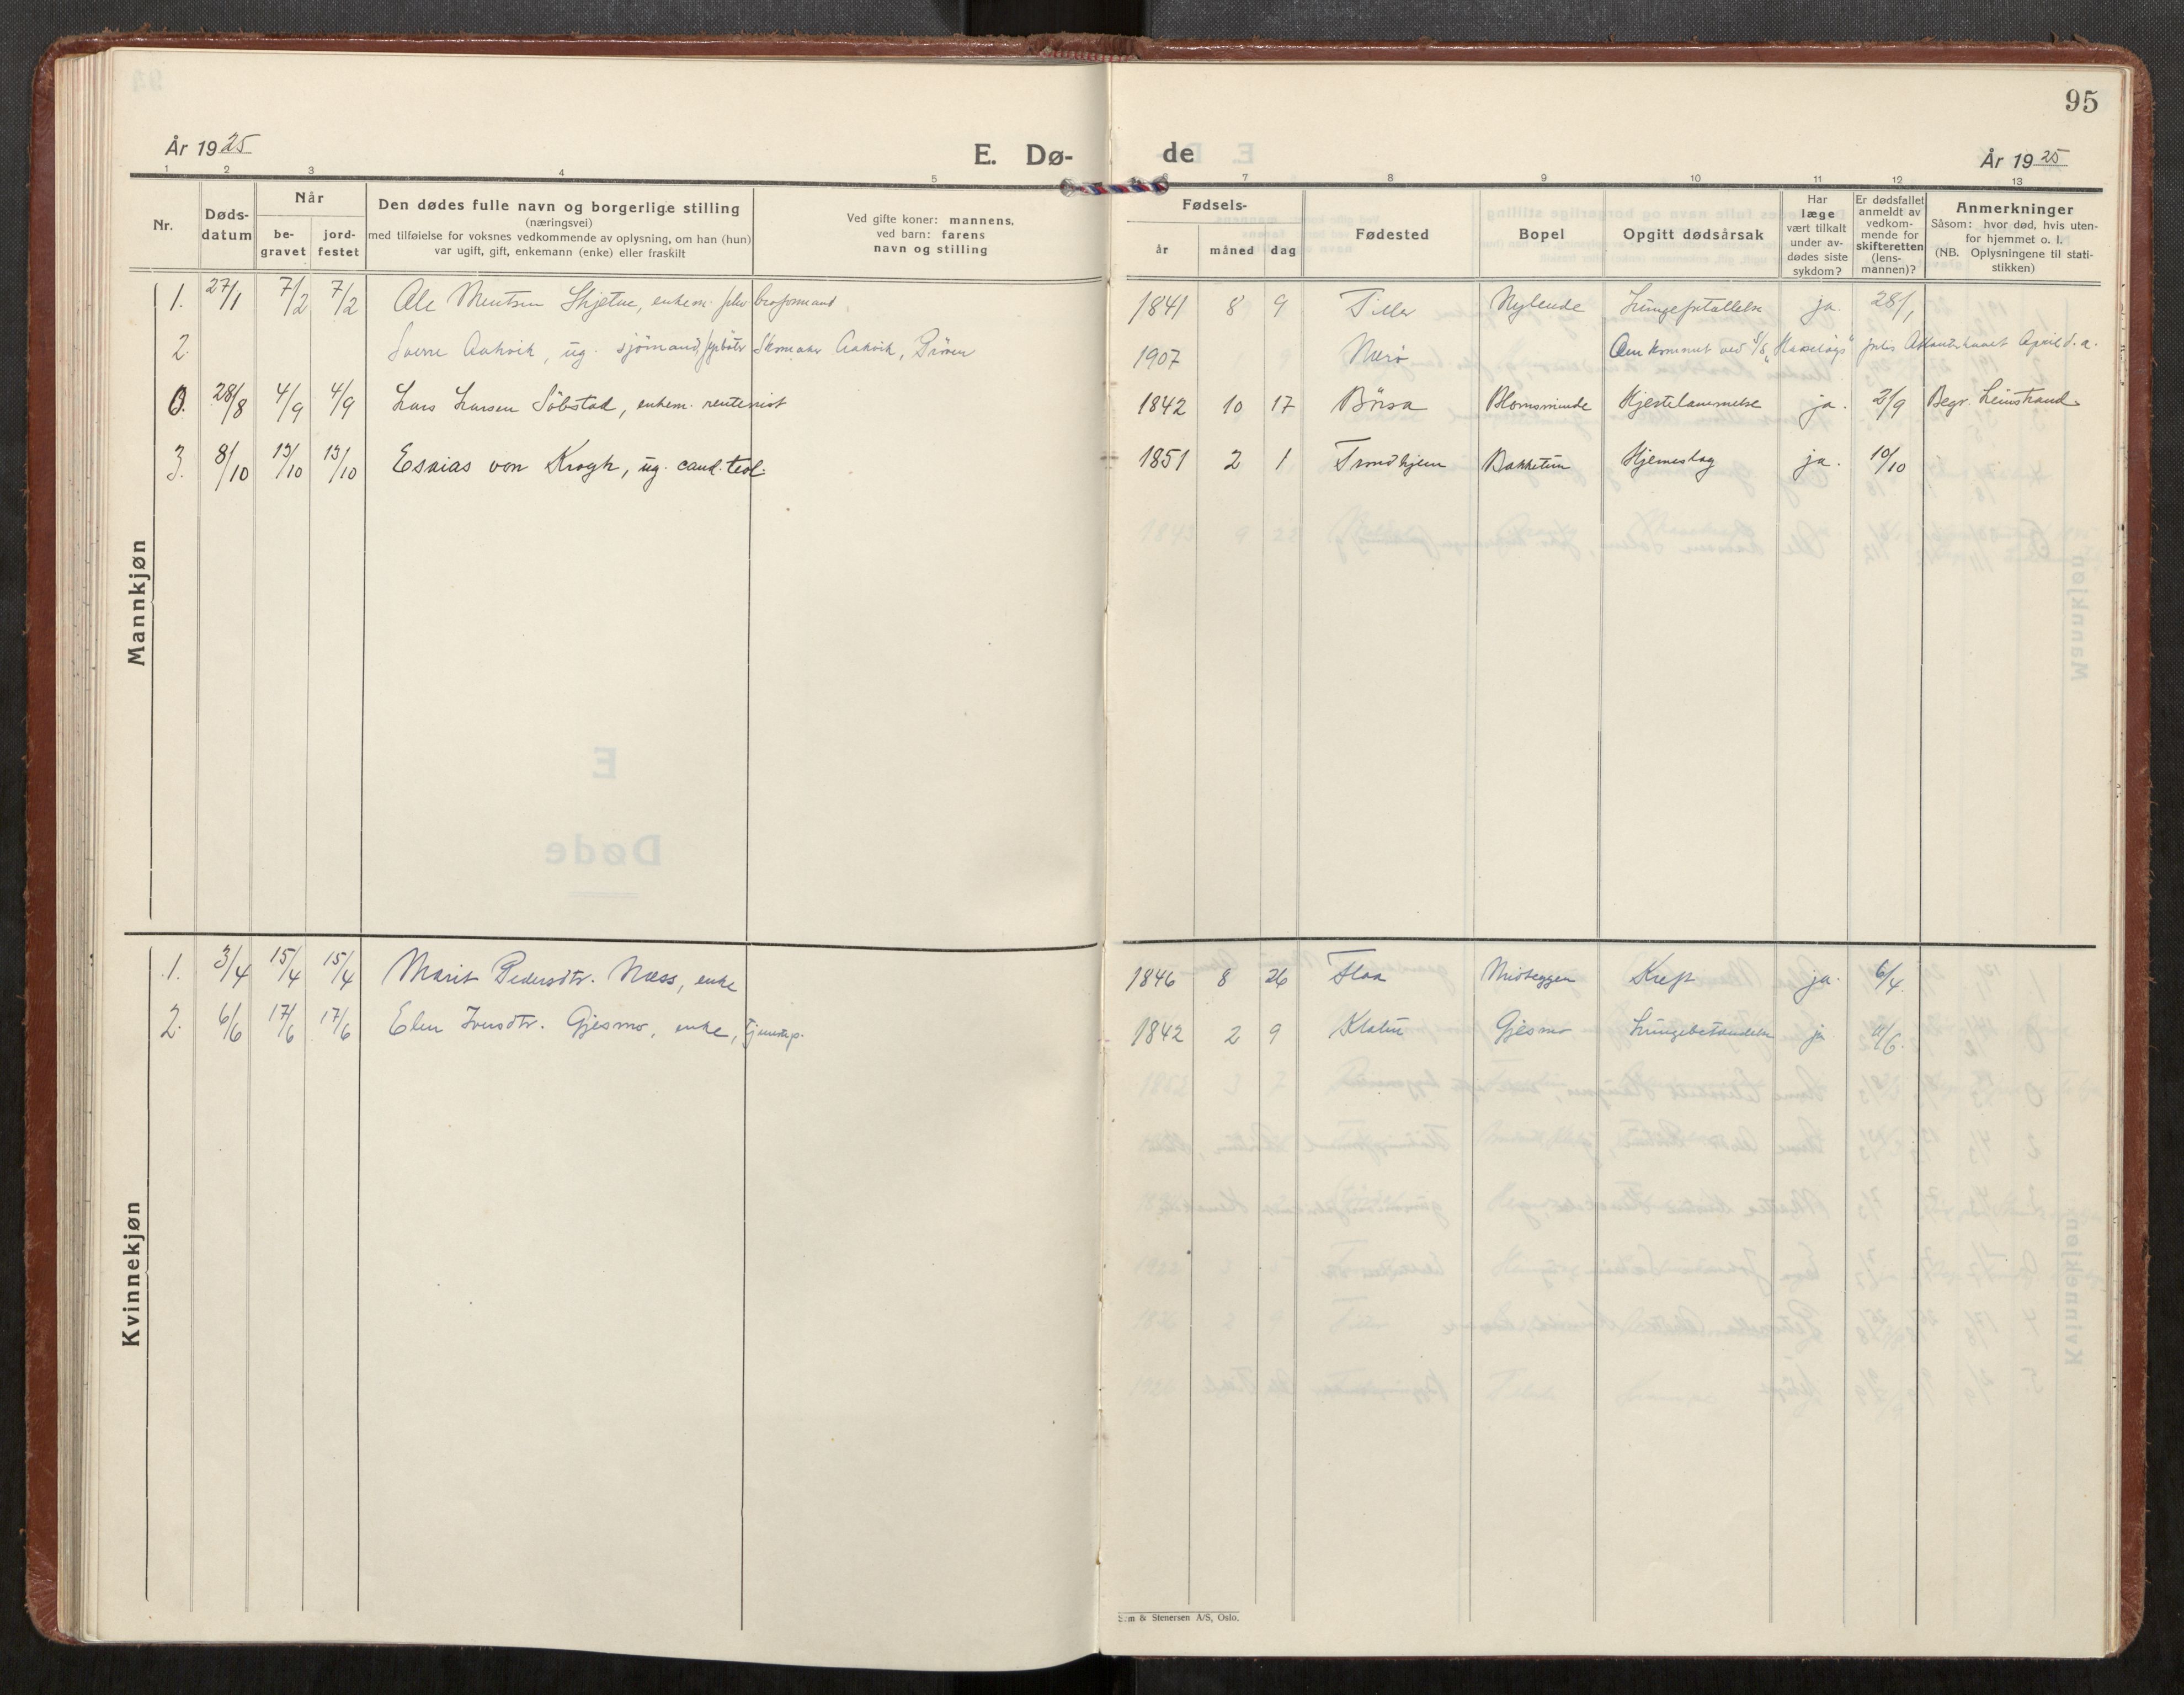 95
År 1925
E. Dø-
de
År 1925
1 2 3 4 5
7 8 9 10 11 12 13
Nr.
Døds-
datum
Når
be-
gravet
jord-
festet
Den dødes fulle navn og borgerlige stilling
(næringsvei)
med tilføielse for voksnes vedkommende av oplysning, om han (hun)
var ugift, gift, enkemann (enke) eller fraskilt
Ved gifte koner: mannens,
ved barn: farens
navn og stilling
Fødsels-
år måned dag
Fødested
Bopel
Opgitt dødsårsak
Har
læge
vært tilkalt
under av-
dødes siste
sykdom?
Er dødsfallet
anmeldt av
vedkom-
mende for
skifteretten
(lens-
mannen)?
Anmerkninger
Såsom: hvor død, hvis uten-
for hjemmet o. l.
(NB. Oplysningene til stati-
stikken)
Mannkjøn
1. 27/1 7/2 7/2 Ole Mentsen Skjetne, enkem. 1841 8 9 Tiller Nylende ja. 28/1
2. Sverre Aakvik, ug. sjömand, Skomaker Aakvik, Prøven 1907 Nærö Omkommet ved S/S Atlanterhavet April d.a.
0. 28/8 4/9 4/9 Lars Larsen Söbstad, enkem. rentenist 1842 10 17 Börsa Blomsminde Hjertelammelse ja. 2/9 Begr. Leinstrand
3. 8/10 13/10 13/10 Esaias von Krogh, ug. cand. teol. 1851 2 1 Trondhjem Bakketun Hjerneslag ja. 10/10
Kvinnekjøn
1. 3/4 15/4 15/4 Marit Pedersdtr. Næss, enke 1846 8 26 Flaa Midteggen Kreft ja. 6/4
2. 6/6 17/6 17/6 Elen Iversdtr. Gjesmo, enke, 1842 2 9 Klæbu Gjesmo Lungebetændelse ja 11/6.
& Stenersen A/S, Oslo.